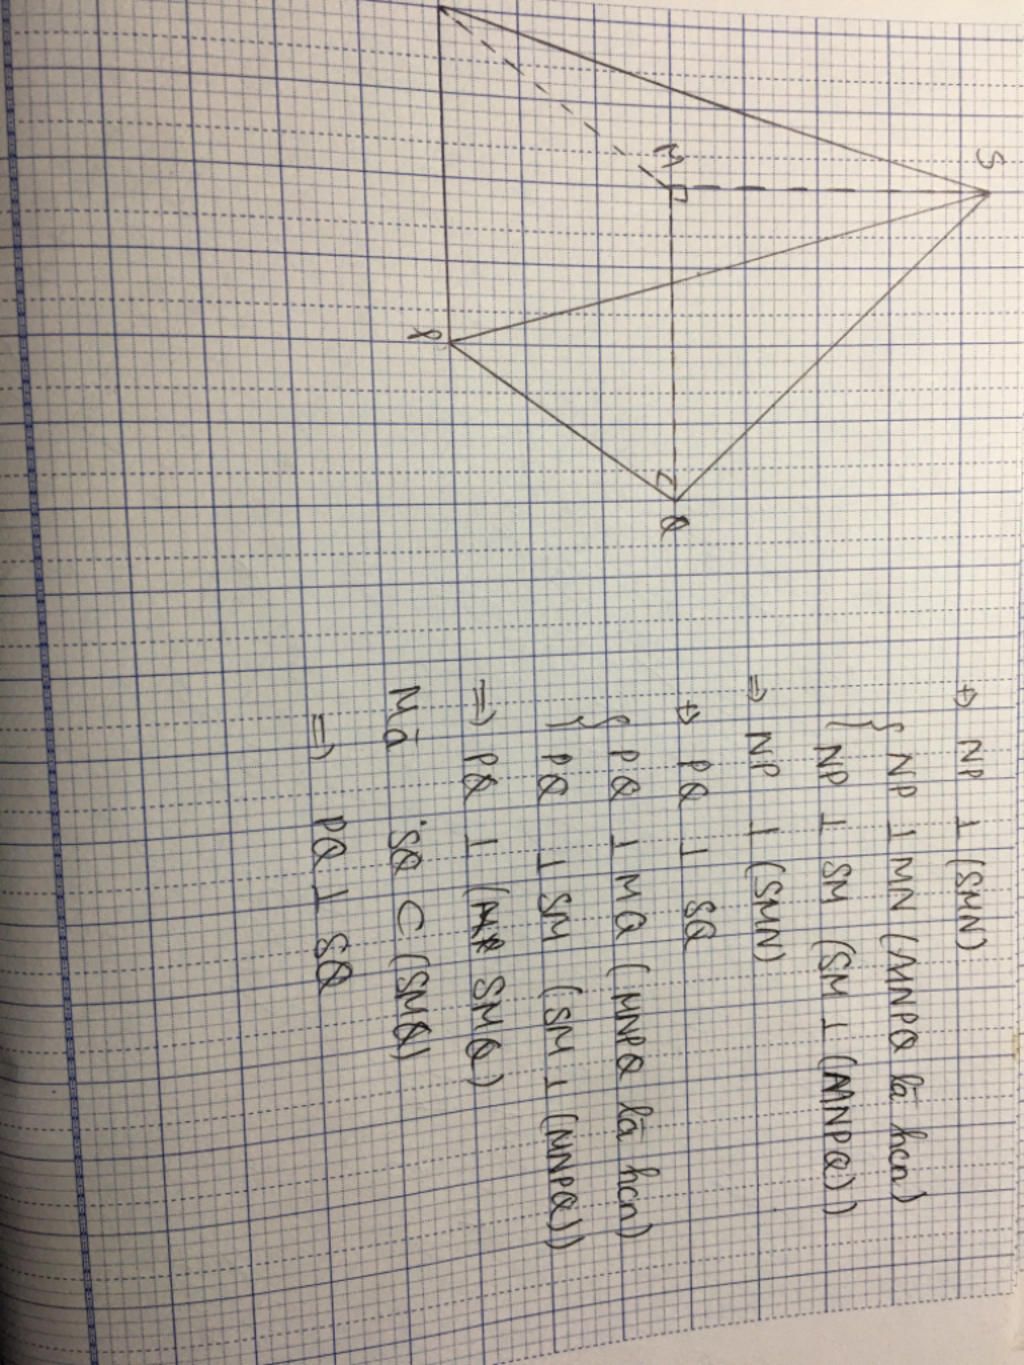 S
M
P
Q
+) NP ⊥ (SMN)
{ NP ⊥ MN (MNPQ là hcn)
NP ⊥ SM (SM ⊥ (MNPQ))
=> NP ⊥ (SMN)
+) PQ ⊥ SQ
{ PQ ⊥ MQ (MNPQ là hcn)
PQ ⊥ SM (SM ⊥ (MNPQ))
=> PQ ⊥ (SMQ)
Mà SQ ⊂ (SMQ)
=> PQ ⊥ SQ